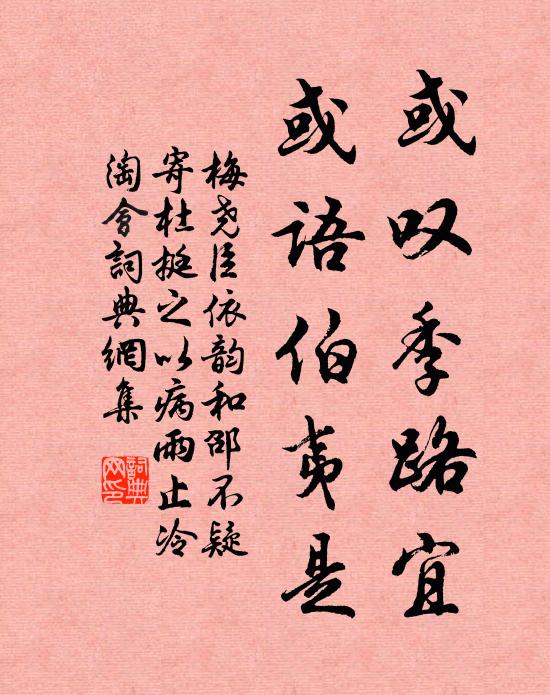 或叹季路宜
或语伯夷是
梅尧臣依韵和邵不疑
寄杜挺之以病雨止冷
淘會詞典網集
詞典
网印